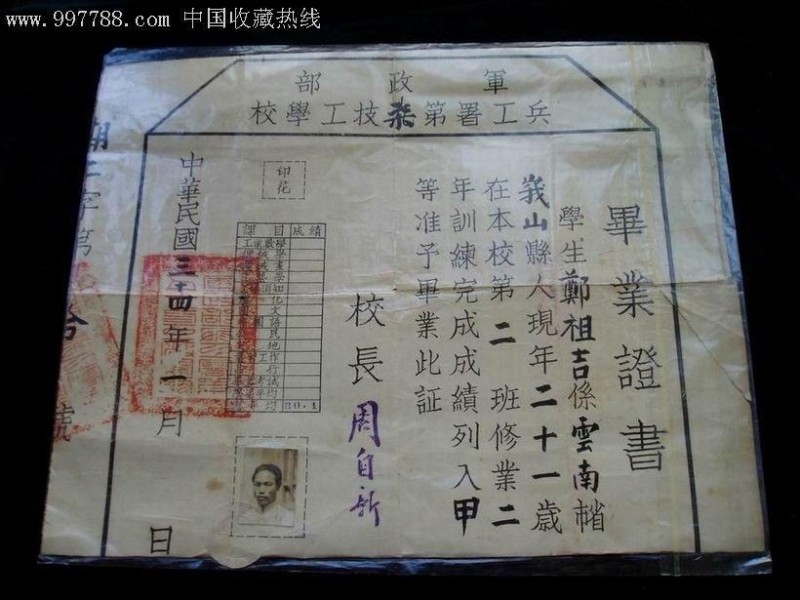 www.997788.com 中国收藏热线
軍政部
兵工署第柒技工學校
畢業證書
學生鄭祖吉係雲南省市
峩山縣人現年二十一歲
在本校第二班修業二
年訓練完成成績列入甲
等准予畢業此証
校長 周自新
印花
課目 成績
80.1
中華民國三十四年一月 日
字第
號